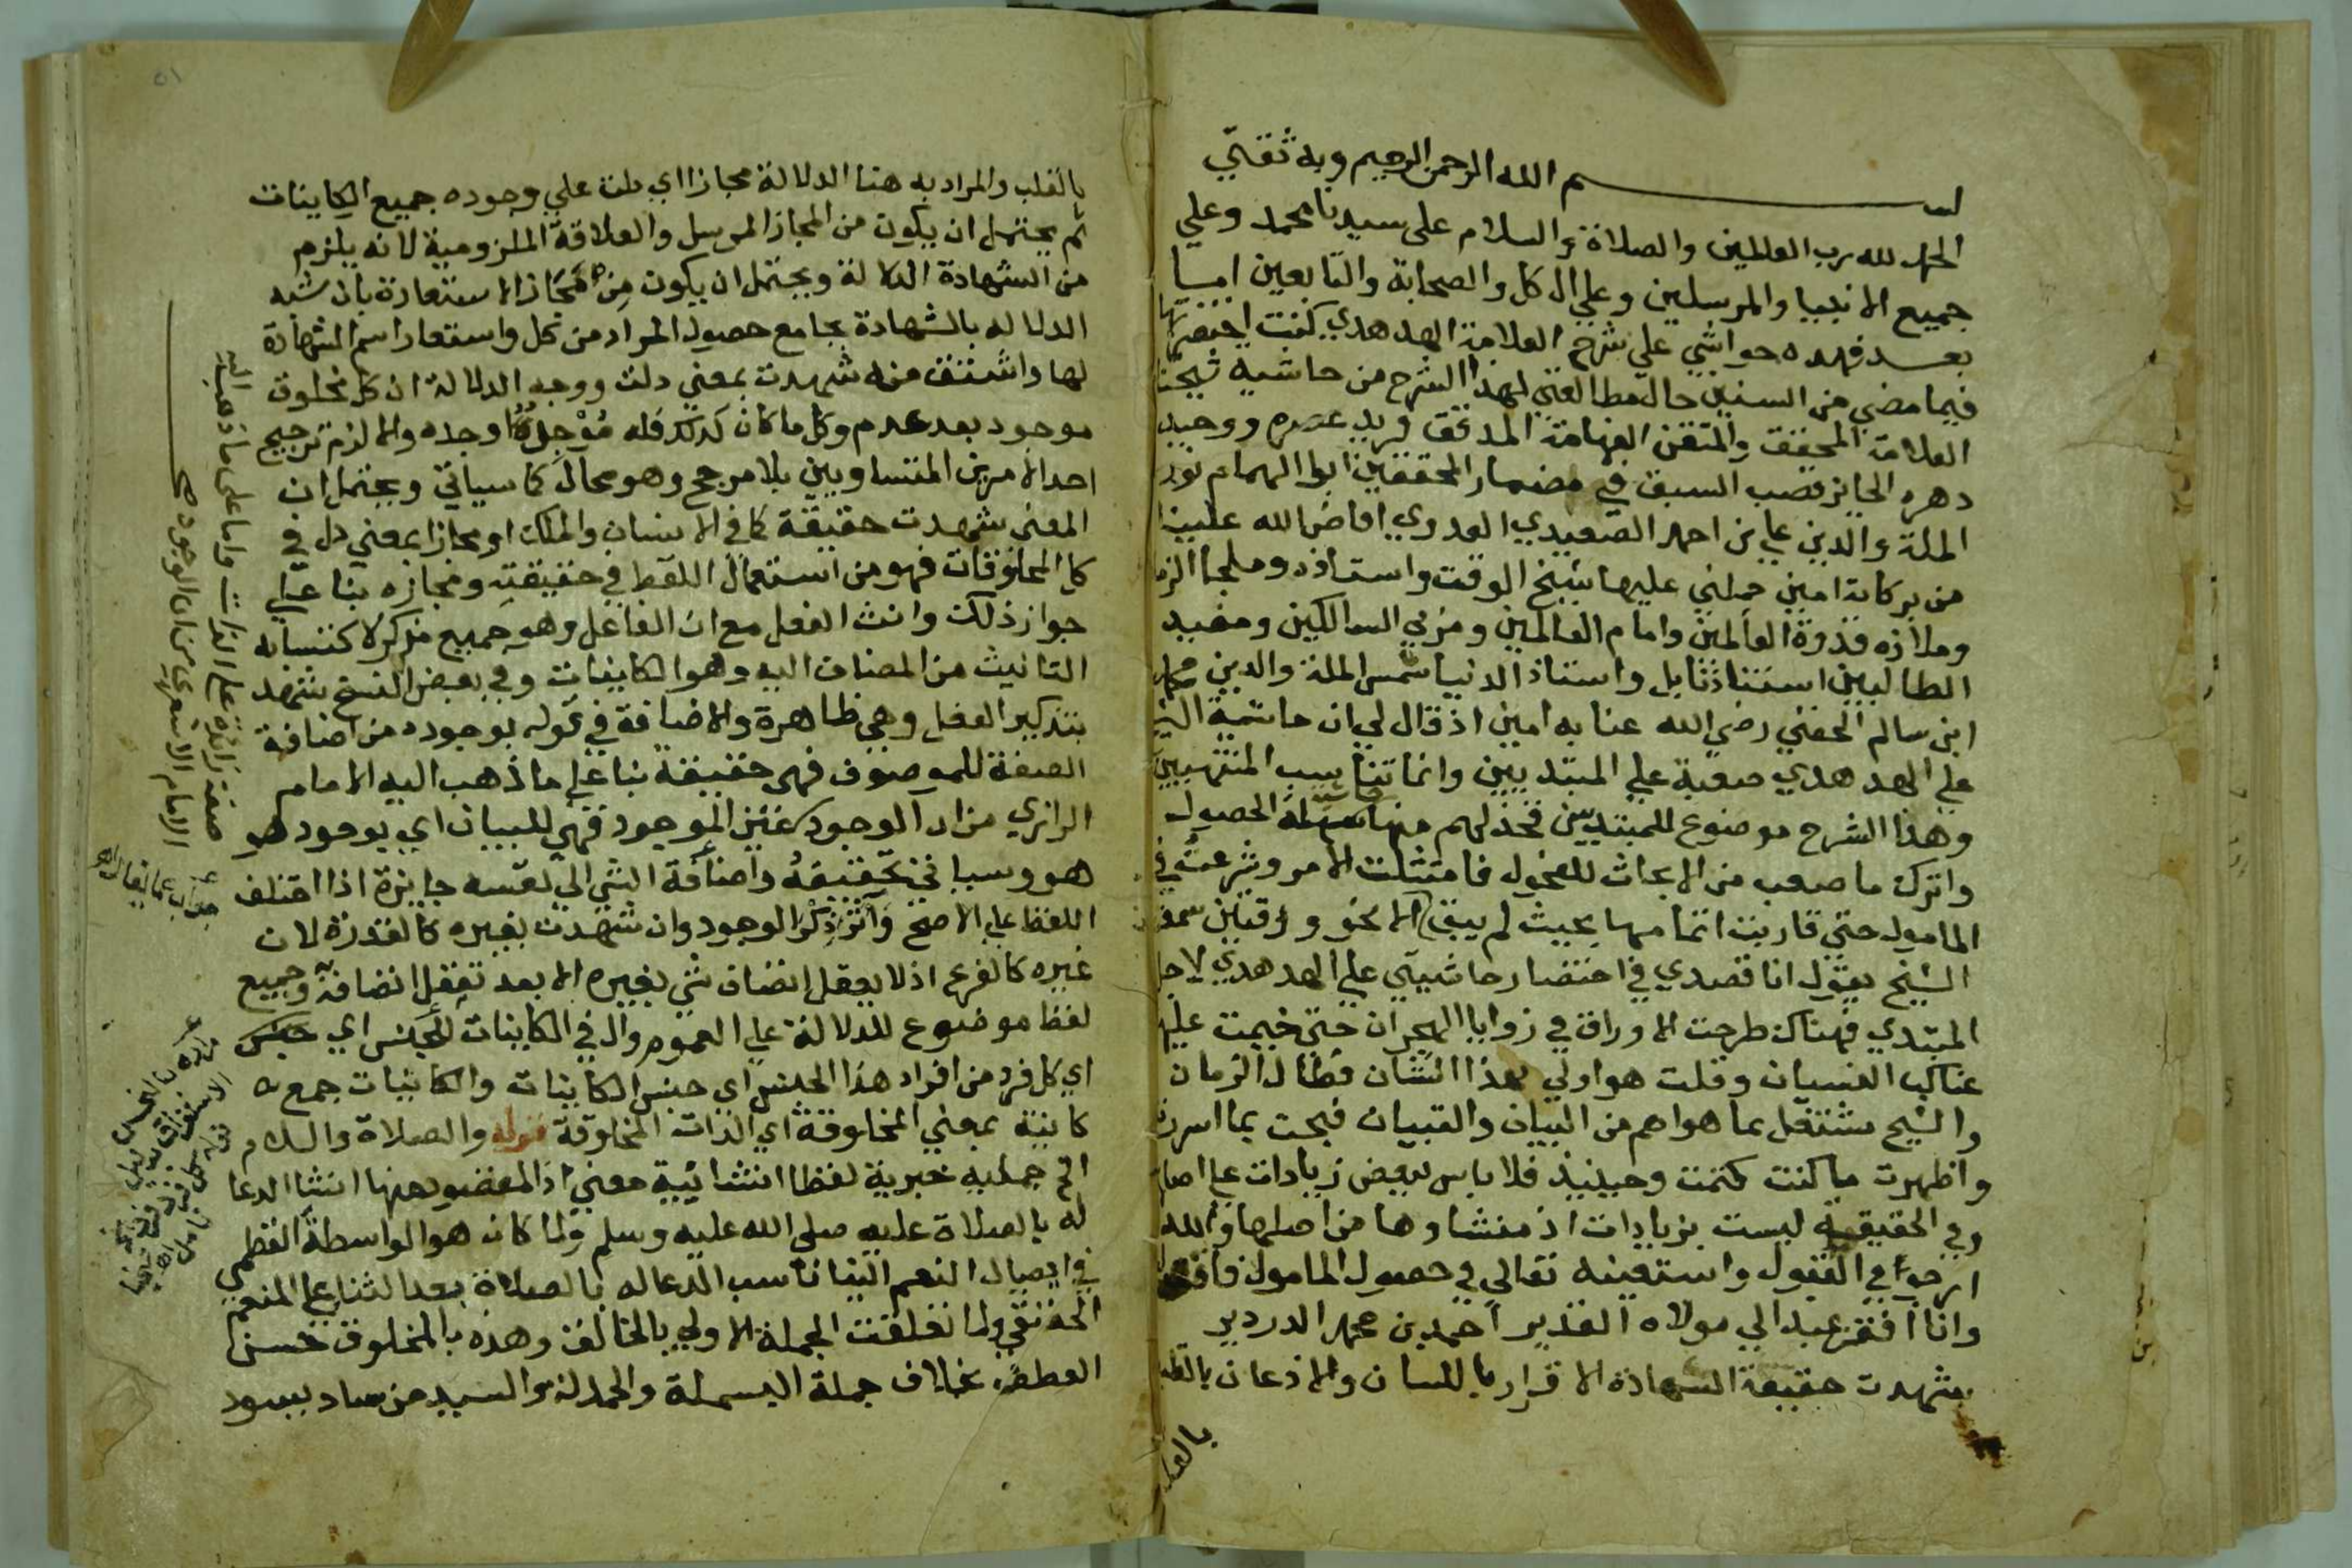 بسم الله الرحمن الرحيم وبه ثقتي
الحمد لله رب العالمين والصلاة والسلام على سيدنا محمد وعلي
جميع الانبيا والمرسلين وعلي ال كل والصحابة والتابعين اما
بعد فهده حواشي علي شرح العلامة الهدهدي كنت اختصرتها
فيما مضي من السنين حال مطالعتي لهذا الشرح من حاشية شيخنا
العلامة المحقق والمتقن الفهامة المدقق فريد عصره ووحيد
دهره الحايز قصب السبق في مضمار المحققين ابو الهمام نور
الملة والدين علي بن احمد الصعيدي العدوي افاض الله علينا
من بركاته امين حملني عليها شيخ الوقت واستاذه وملجا الزمان
وملاذه قدوة العالمين وامام العالمين ومربي السالكين ومفيد
الطالبين استاذنا بل واستاذ الدنيا شمس الملة والدين محمد
ابن سالم الحفني رضي الله عنا به امين اذ قال لي ان حاشية الشيخ
علي الهدهدي صعبة علي المبتديين وانما تناسب المنتهيين
وهذا الشرح موضوع للمبتديين فخذ لهم منها سهلة الحصول
واترك ما صعب من الابحاث للفحول فامتثلت الامر وشرعت في
المامول حتي قاربت اتمامها بحيث لم يبق الا نحو ورقتين سمعت
الشيخ يقول انا قصدي في اختصار حاشيتي علي الهدهدي لاجل
المبتدي فهناك طرحت الاوراق في زوايا الهجران حتي خيمت عليها
عناكب النسيان وقلت هو اولي بهذا الشان فطال الزمان
والشيخ مشتغل بما هو اهم من البيان والتبيان فبحت بما اسررت
واظهرت ما كنت كتمت وحينيذ فلا باس ببعض زيادات علي اصلها
وفي الحقيقة ليست بزيادات اذ منشاوها من اصلها والله
ارجو في القبول واستعينه تعالي في حصول المامول فاقول
وانا افقر عبد الي مولاه القدير احمد بن محمد الدردير
شهدت حقيقة الشهادة الاقرار باللسان والاذعان بالقلب
بالقلب والمراد به هنا الدلالة مجازا اي دلت علي وجوده جميع الكاينات
ثم يحتمل ان يكون من المجاز المرسل والعلاقة الملزومية لانه يلزم
من الشهادة الدلالة ويحتمل ان يكون من مجاز الاستعارة بان شبه
الدلاله بالشهادة بجامع حصول المراد من كل واستعار اسم الشهادة
لها واشتق منه شهدت بمعني دلت ووجه الدلالة ان كل مخلوق
موجود بعد عدم وكل ما كان كذلك فله موجد اوجده والا لزم ترجيح
احد الامرين المتساويين بلا مرجح وهو محال كما سياتي ويحتمل ان
المعني شهدت حقيقة كما في الانسان والملك او مجازا بمعني دل في
كل المخلوقات فهو من استعمال اللفظ في حقيقته ومجازه بنا علي
جواز ذلك وانث الفعل مع ان الفاعل وهو جميع مذكر لاكتسابه
التانيث من المضاف اليه وهو الكاينات وفي بعض النسخ شهد
بتذكير الفعل وهي ظاهرة والاضافة في قوله بوجوده من اضافة
الصفة للموصوف فهي حقيقة بنا علي ما ذهب اليه الامام
الرازي من ان الوجود غير الموجود فهي للبيان اي بوجود هو
هو وسياتي تحقيقه واضافة الشي الي نفسه جايزة اذا اختلف
اللفظ علي الاصح واثر ذكر الوجود وان شهدت بغيره كالقدرة لان
غيره كالفرع اذ لا يعقل اتصاف شي بغيره الا بعد تعقل اتصافه وجميع
لفظ موضوع للدلالة علي العموم وال في الكاينات للجنس اي جنس
اي كل فرد من افراد هذا الجنس اي جنس الكاينات والكاينات جمع
كاينة بمعني المخلوقة اي الذات المخلوقة قوله والصلاة والسلام
الخ جملة خبرية لفظا انشائية معني اذ المقصود منها انشا الدعا
له بالصلاة عليه صلي الله عليه وسلم ولما كان هو الواسطة العظمي
في ايصال النعم الينا ناسب الدعا له بالصلاة بعد الثنا علي المنعم
الحقيقي ولما تعلقت الجملة الاولي بالخالق وهذه بالمخلوق حسن
العطف بخلاف جملة البسملة والحمدلة والسيد من ساد يسود
صفة زائدة علي الذات واما علي ما ذهب اليه
الامام الاشعري من ان الوجود